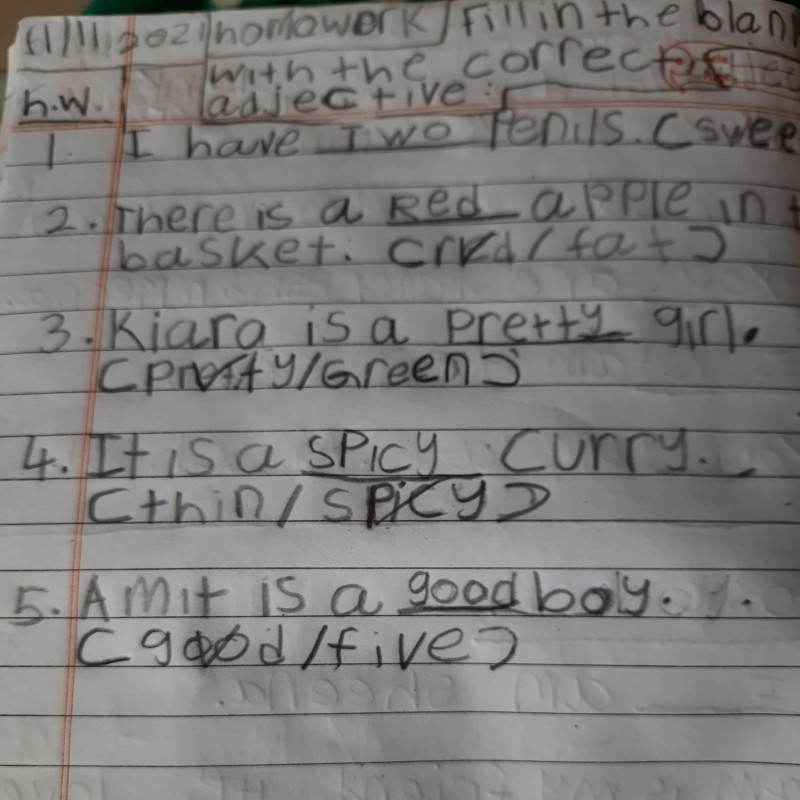 11/11/2021 homowork/Fill in the blan
with the correct
h.w. adjective:
1. I have Two Penils. (swee
2. There is a Red apple in t
basket. (red/fat)
3. Kiara is a pretty girl.
(pretty/Green)
4. It is a spicy curry.
(thin/spicy)
5. Amit is a good boy.
(good/five)